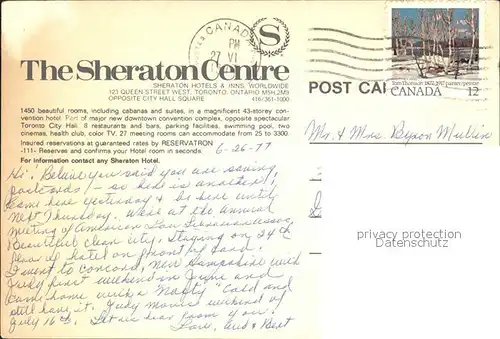 CANADA
PM
27 VI
S
The Sheraton Centre
SHERATON HOTELS & INNS, WORLDWIDE
123 QUEEN STREET WEST, TORONTO, ONTARIO M5H 2M9
OPPOSITE CITY HALL SQUARE 416/361-1000
1450 beautiful rooms, including cabanas and suites, in a magnificent 43-storey con-
vention hotel. Part of major new downtown convention complex, opposite spectacular
Toronto City Hall. 8 restaurants and bars, parking facilities, swimming pool, two
cinemas, health club, color TV. 27 meeting rooms can accommodate from 25 to 3300.
Insured reservations at guaranteed rates by RESERVATRON
-111- Reserves and confirms your Hotel room in seconds.
For information contact any Sheraton Hotel.
6-26-77
Hi! Believe you said you are saving
postcards! - so here is another!
Came here yesterday & be here until
next Thursday. We're at the annual
meeting of American Assoc.
Beautiful clean city. Staying on 24th
floor of hotel on front of card.
I went to Concord, New Hampshire with
Judy first weekend in June and
came home with a "nasty" cold and
still have it. Judy moves weekend of
July 16th. Let us hear from you.
Love, and Bert
Tom Thomson 1877-1917 painter/peintre
CANADA 12
POST CA
Mr. & Mrs. Byron Mullin
privacy protection
Datenschutz